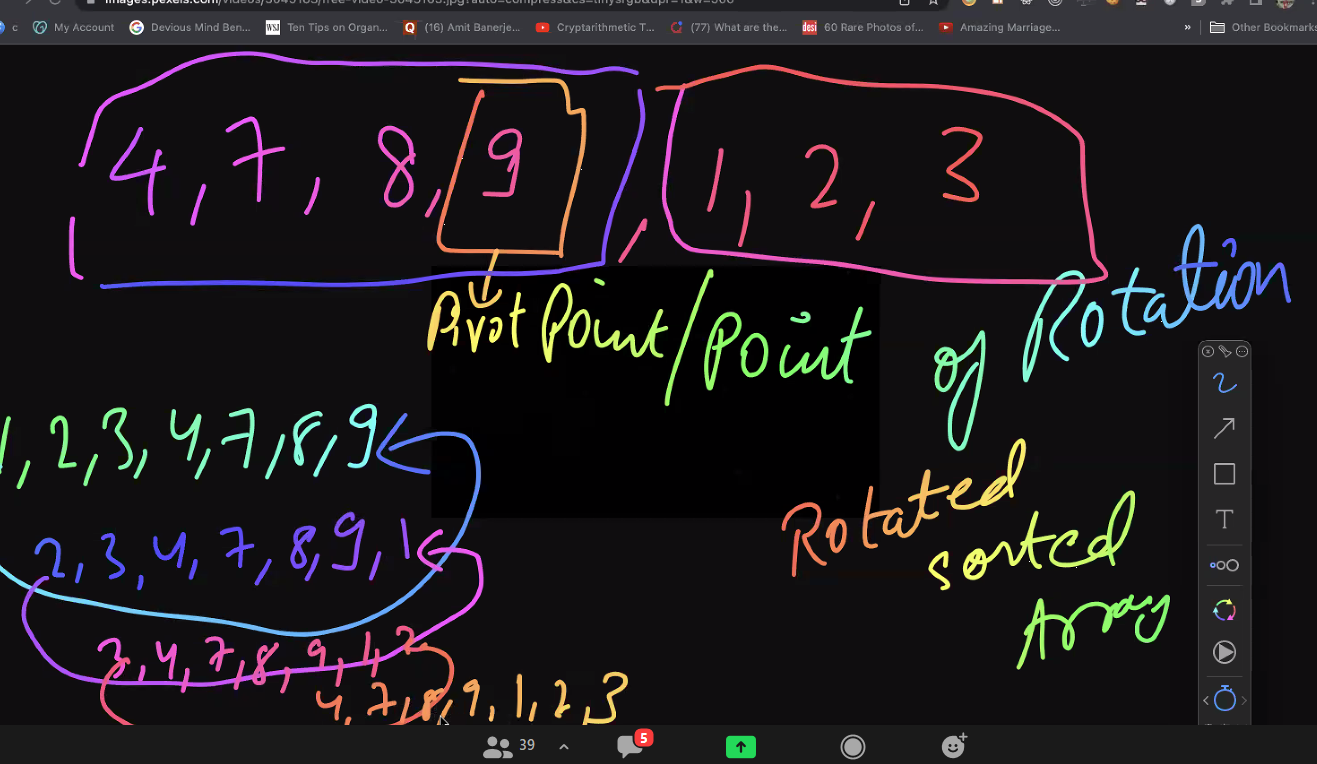 images.pexels.com/videos/3045163/free-video-3045163.jpg?auto=compress&cs=tinysrgb&dpr=1&w=500
c My Account Devious Mind Ben... WSJ Ten Tips on Organ... (16) Amit Banerje... Cryptarithmetic T... (77) What are the... desi 60 Rare Photos of... Amazing Marriage... » Other Bookmarks
4, 7, 8, 9, 1, 2, 3
Pivot Point/Point of Rotation
1, 2, 3, 4, 7, 8, 9
Rotated
sorted
Array
2, 3, 4, 7, 8, 9, 1
3, 4, 7, 8, 9, 1, 2
4, 7, 8, 9, 1, 2, 3
T
39 5